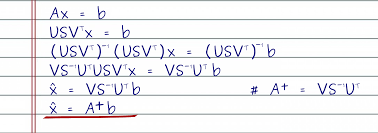 Ax = b
USVᵀx = b
(USVᵀ)⁻¹(USVᵀ)x = (USVᵀ)⁻¹b
VS⁻¹UᵀUSVᵀx = VS⁻¹Uᵀb
x̂ = VS⁻¹Uᵀb # A+ = VS⁻¹Uᵀ
x̂ = A+b